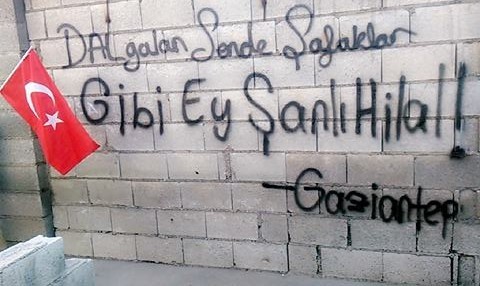 DALgalan Sende Şafaklar
Gibi Ey Şanlı Hilal!
-Gaziantep